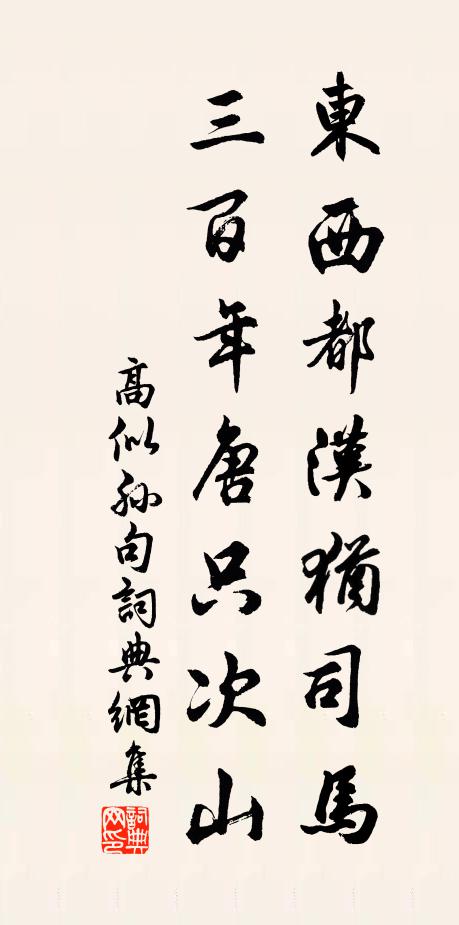 東西都漢猶司馬
三百年唐只次山
高似孫句詞典網集
詞典網印